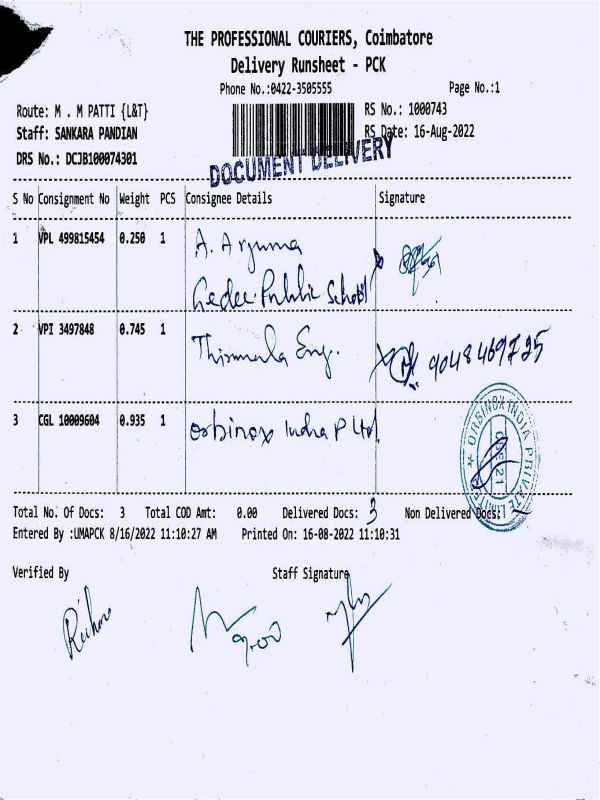 THE PROFESSIONAL COURIERS, Coimbatore
Delivery Runsheet - PCK
Phone No.:0422-3505555 Page No.:1
Route: M . M PATTI {L&T} RS No.: 1000743
Staff: SANKARA PANDIAN RS Date: 16-Aug-2022
DRS No.: DCJB100074301
DOCUMENT DELIVERY
S No Consignment No Weight PCS Consignee Details Signature
1 VPL 499815454 0.250 1 A. Arjuna
Gedee Public School
2 VPI 3497848 0.745 1 Thirumala Eng. 9048469725
3 CGL 10009604 0.935 1 Orbinox India P Ltd
ORBINOX INDIA PRIVATE LIMITED
Total No. Of Docs: 3 Total COD Amt: 0.00 Delivered Docs: 3 Non Delivered Docs:
Entered By :UMAPCK 8/16/2022 11:10:27 AM Printed On: 16-08-2022 11:10:31
Verified By Staff Signature
9.00